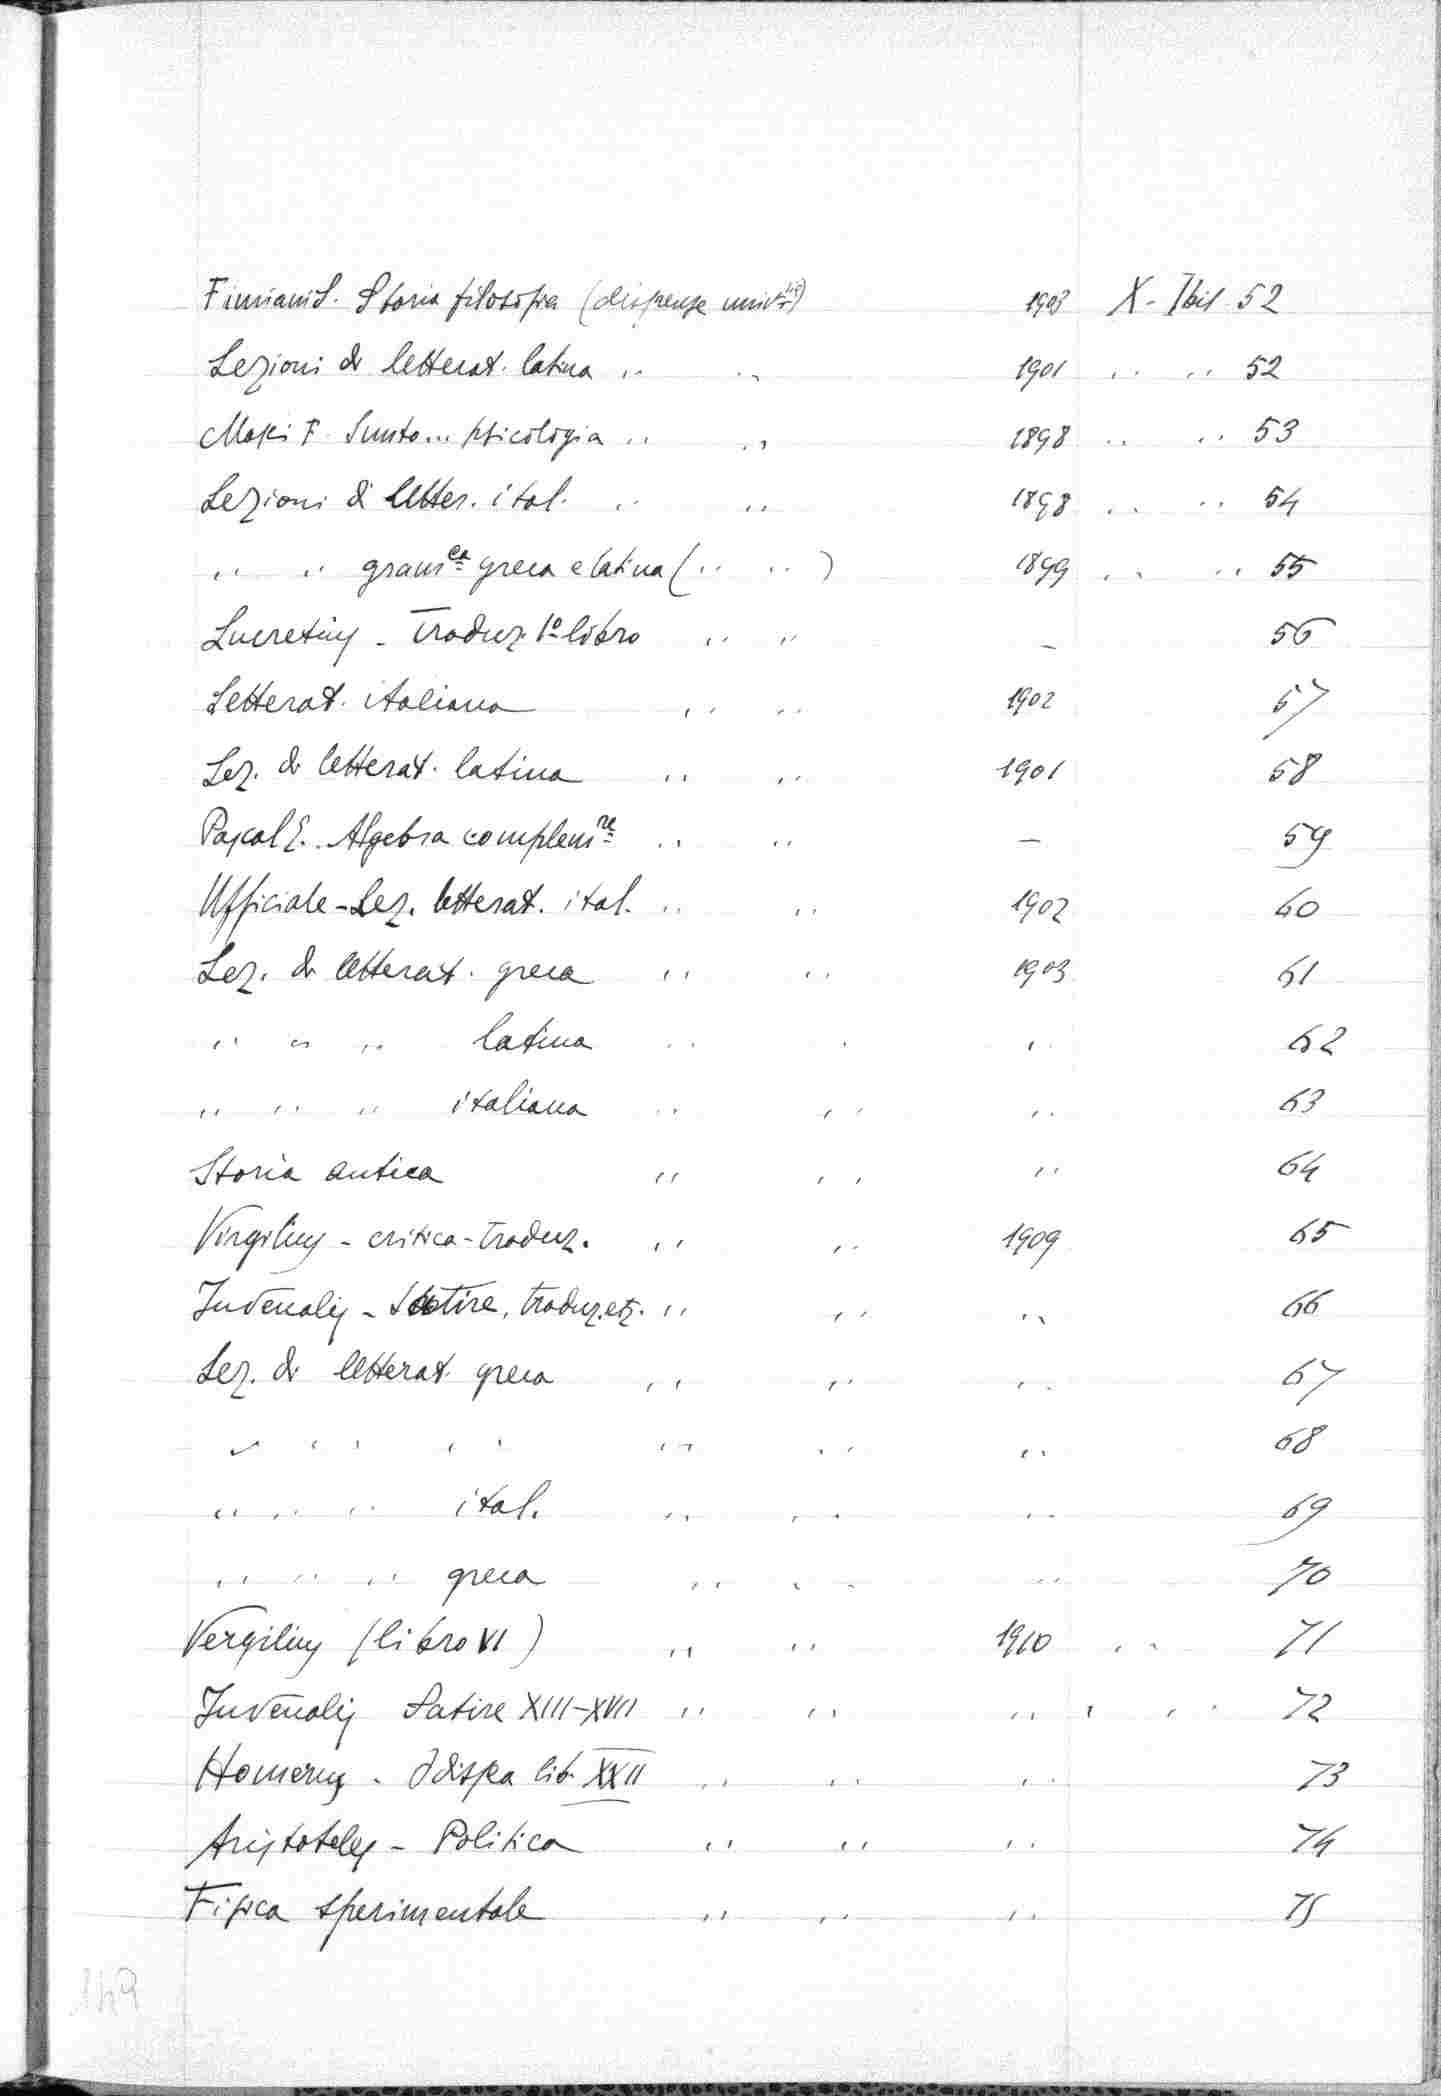 Fimiani S. Storia filosofia (dispense univ.rie) 1903 X - 7bis 52
Lezioni di letterat. latina " " 1901 " " 52
Masci F. Sunto... psicologia " " 1898 " " 53
Lezioni di letter. ital. " " 1898 " " 54
" " gramca greca e latina ( " " ) 1899 " " 55
Lucretius - Traduz. 1º libro " " — 56
Letterat. italiana " " 1902 57
Lez. di letterat. latina " " 1901 58
Pascal E. Algebra complemre " " — 59
Ufficiale - Lez. letterat. ital. " " 1902 60
Lez. di letterat. greca " " 1903 61
" " " latina " " " 62
" " " italiana " " " 63
Storia antica " " " 64
Virgilius - critica - traduz. " " 1909 65
Juvenalis - Satire, traduz. etz. " " " 66
Lez. di letterat. greca " " " 67
" " " " " " 68
" " " ital. " " " 69
" " " greca " " " 70
Vergilius (libro VI) " " 1910 " 71
Juvenalis Satire XIII-XVII " " " " " 72
Homerus - Odissea lib. XXII " " " 73
Aristoteles - Politica " " " 74
Fisica sperimentale " " " 75
149